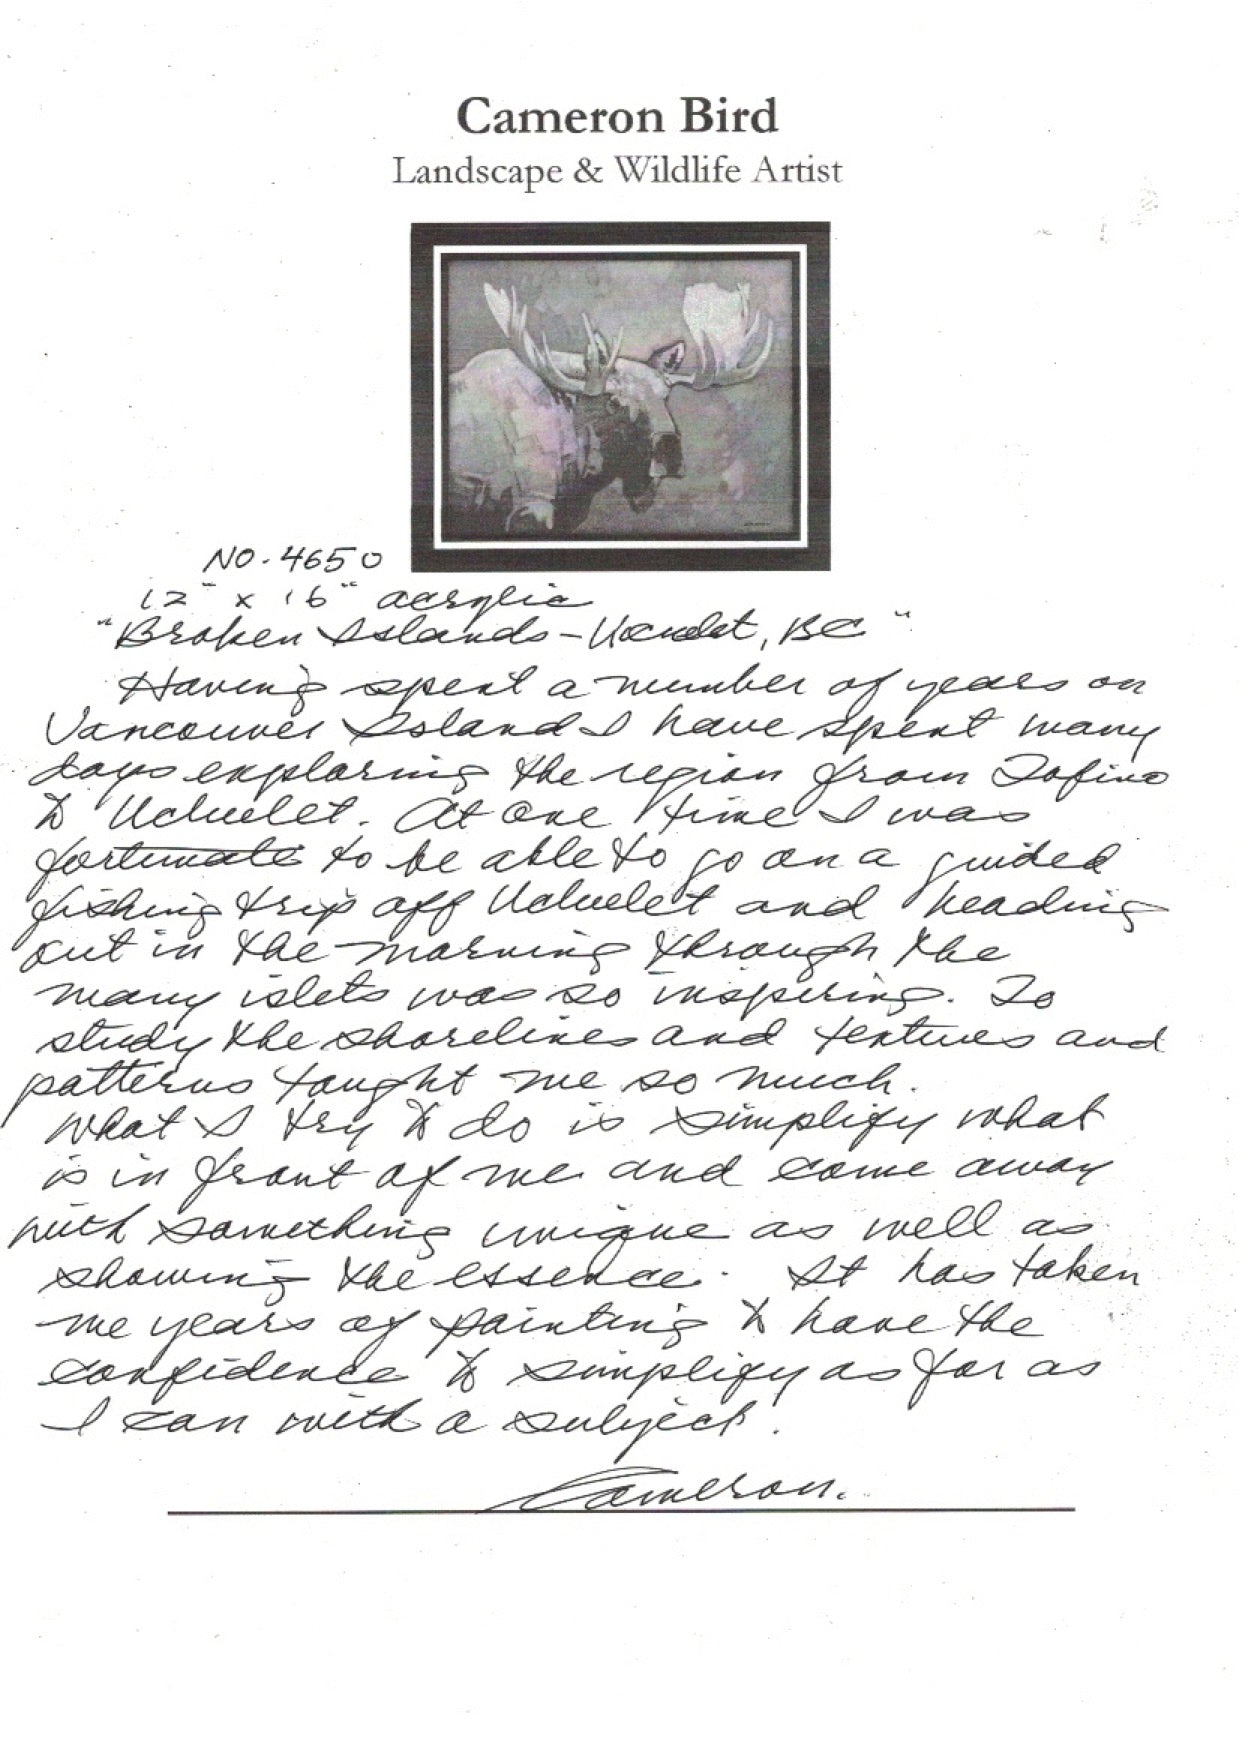 Cameron Bird
Landscape & Wildlife Artist
NO. 4650
12" x 16" acrylic
"Broken Islands – Ucuelet, BC"
Having spent a number of years on
Vancouver Island I have spent many
days exploring the region from Tofino
to Ucluelet. At one time I was
fortunate to be able to go on a guided
fishing trip off Ucluelet and heading
out in the morning through the
many islets was so inspiring. To
study the shorelines and textures and
patterns taught me so much.
What I try to do is simplify what
is in front of me and come away
with something unique as well as
showing the essence. It has taken
me years of painting to have the
confidence to simplify as far as
I can with a subject.
Cameron.